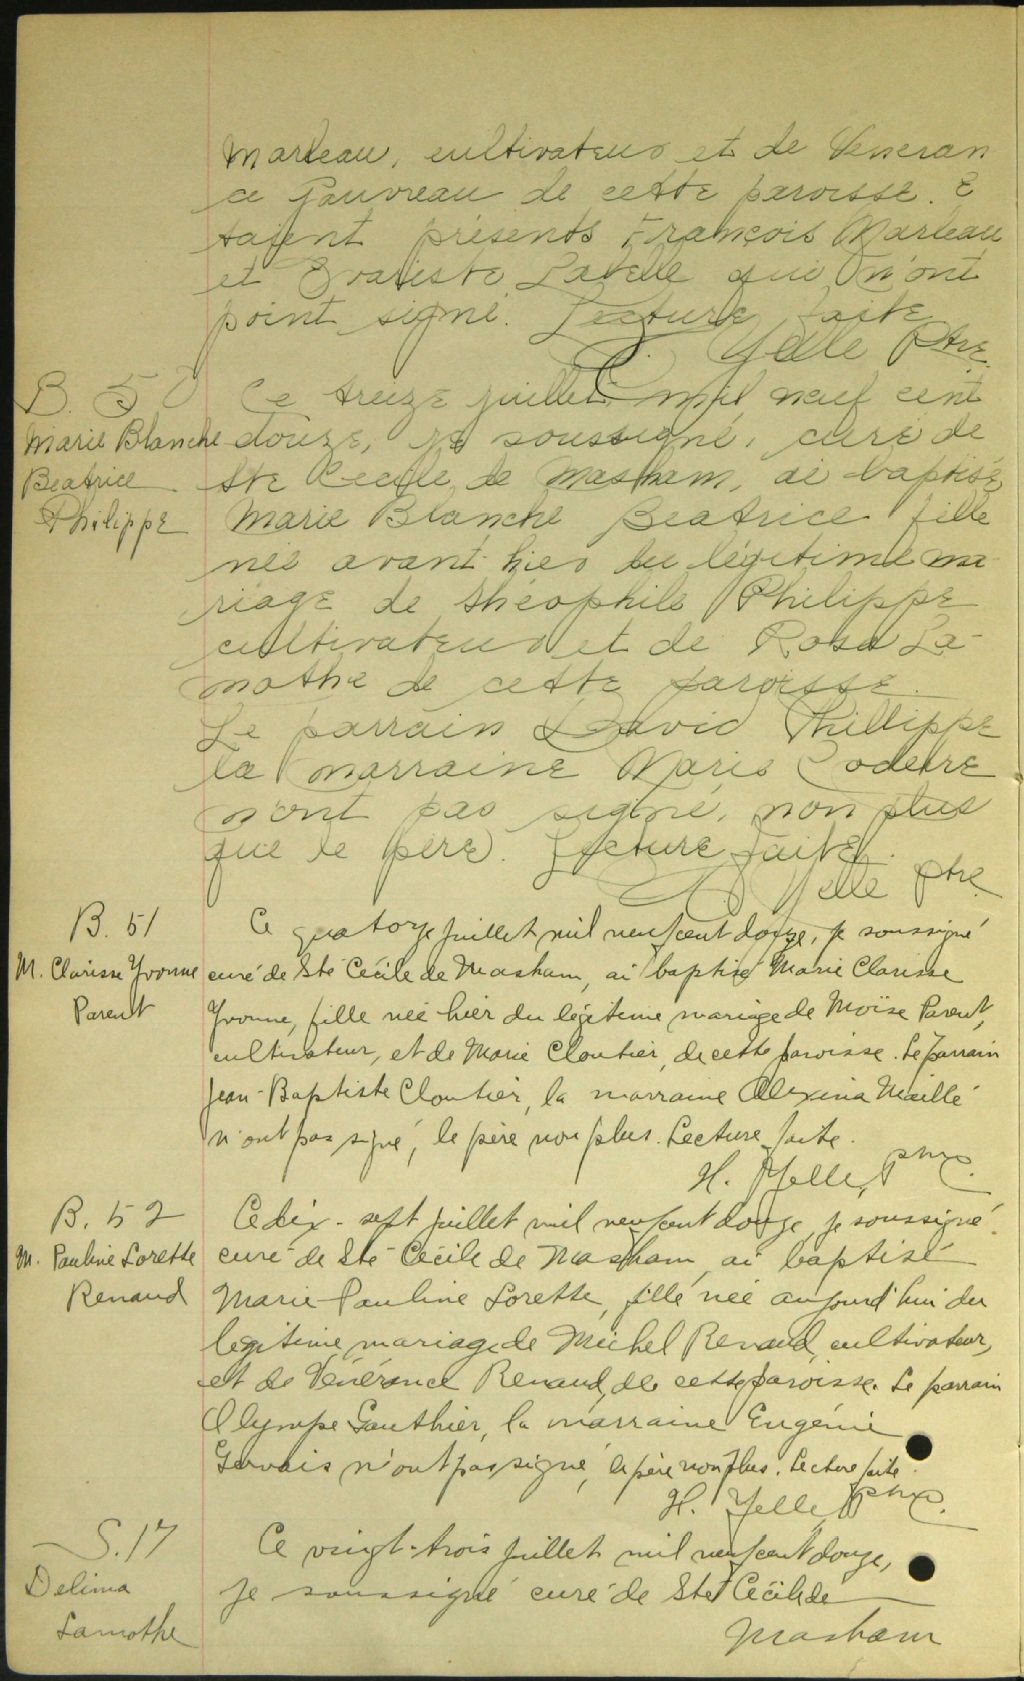 Marleau, cultivateur et de Veneran
ce Gauvreau de cette paroisse. E
taient présents François Marleau
et Evariste Labelle qui n'ont
point signé. Lecture faite
Yelle Ptre.
B. 50
Ce treize juillet mil neuf cent
Marie Blanche
Beatrice
Philippe
douze, je soussigné, curé de
Ste Cecile de Masham, ai baptisé
Marie Blanche Beatrice fille
née avant-hier du légitime ma-
riage de Théophile Philippe
cultivateur et de Rosa La-
mothe de cette paroisse.
Le parrain David Phillippe
la marraine Marie
n'ont pas signé, non plus
que le père. Lecture faite.
Yelle ptre.
B. 51
M. Clarisse Yvonne
Parent
Ce quatorze juillet mil neuf cent douze, je soussigné
curé de Ste Cécile de Masham, ai baptisé Marie Clarisse
Yvonne, fille née hier du légitime mariage de Moïse Parent,
cultivateur, et de Marie Cloutier, de cette paroisse. Le parrain
Jean-Baptiste Cloutier, la marraine Alexina Maillé
n'ont pas signé, le père non plus. Lecture faite.
H. Yelle, Ptre.
B. 52
M. Pauline Lorette
Renaud
Ce dix-sept juillet mil neuf cent douze, je soussigné
curé de Ste Cécile de Masham, ai baptisé
Marie Pauline Lorette, fille née aujourd'hui du
légitime mariage de Michel Renaud, cultivateur,
et de Vénérance Renaud, de cette paroisse. Le parrain
Olympe Gauthier, la marraine Eugénie
Gervais n'ont pas signé, le père non plus. Lecture faite.
H. Yelle, Ptre.
S. 17
Delima
Lamothe
Ce vingt-trois juillet mil neuf cent douze,
je soussigné curé de Ste Cécile de
Masham